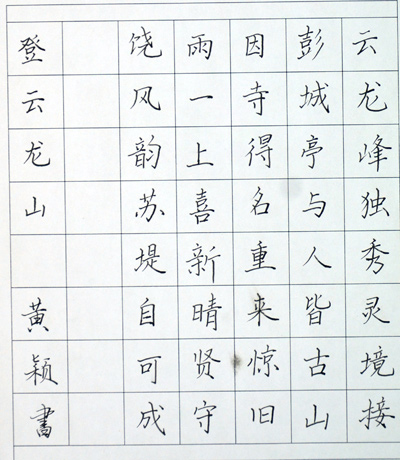 云龙峰独秀灵境接
彭城亭与人皆古山
因寺得名重来惊旧
雨一上喜新晴贤守
饶风韵苏堤自可成
登云龙山 黄颖书